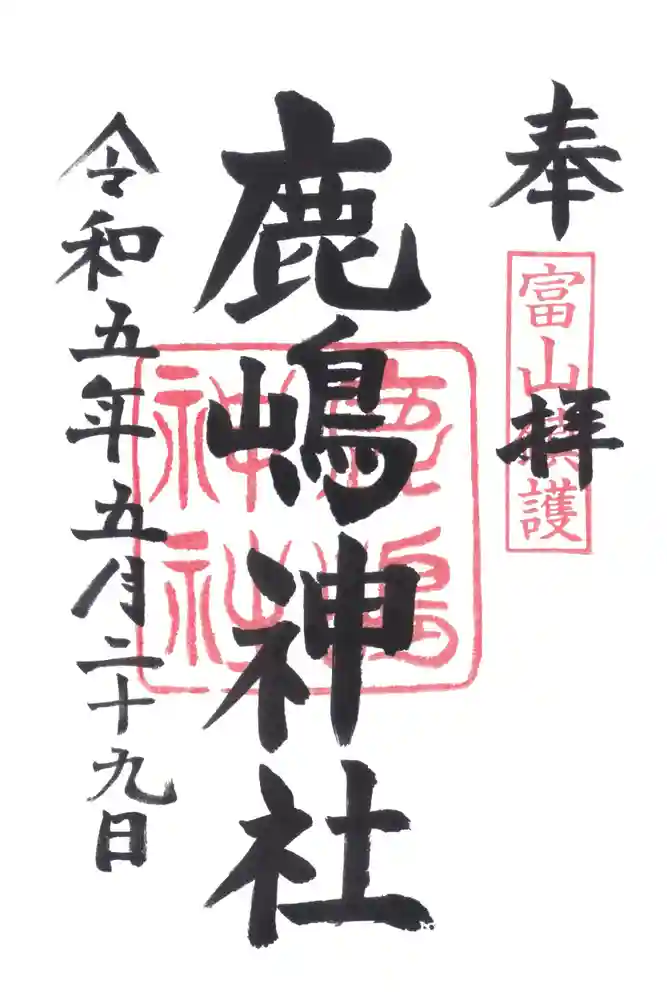 奉拝
富山鎮護
鹿嶋神社
鹿嶋神社
令和五年五月二十九日